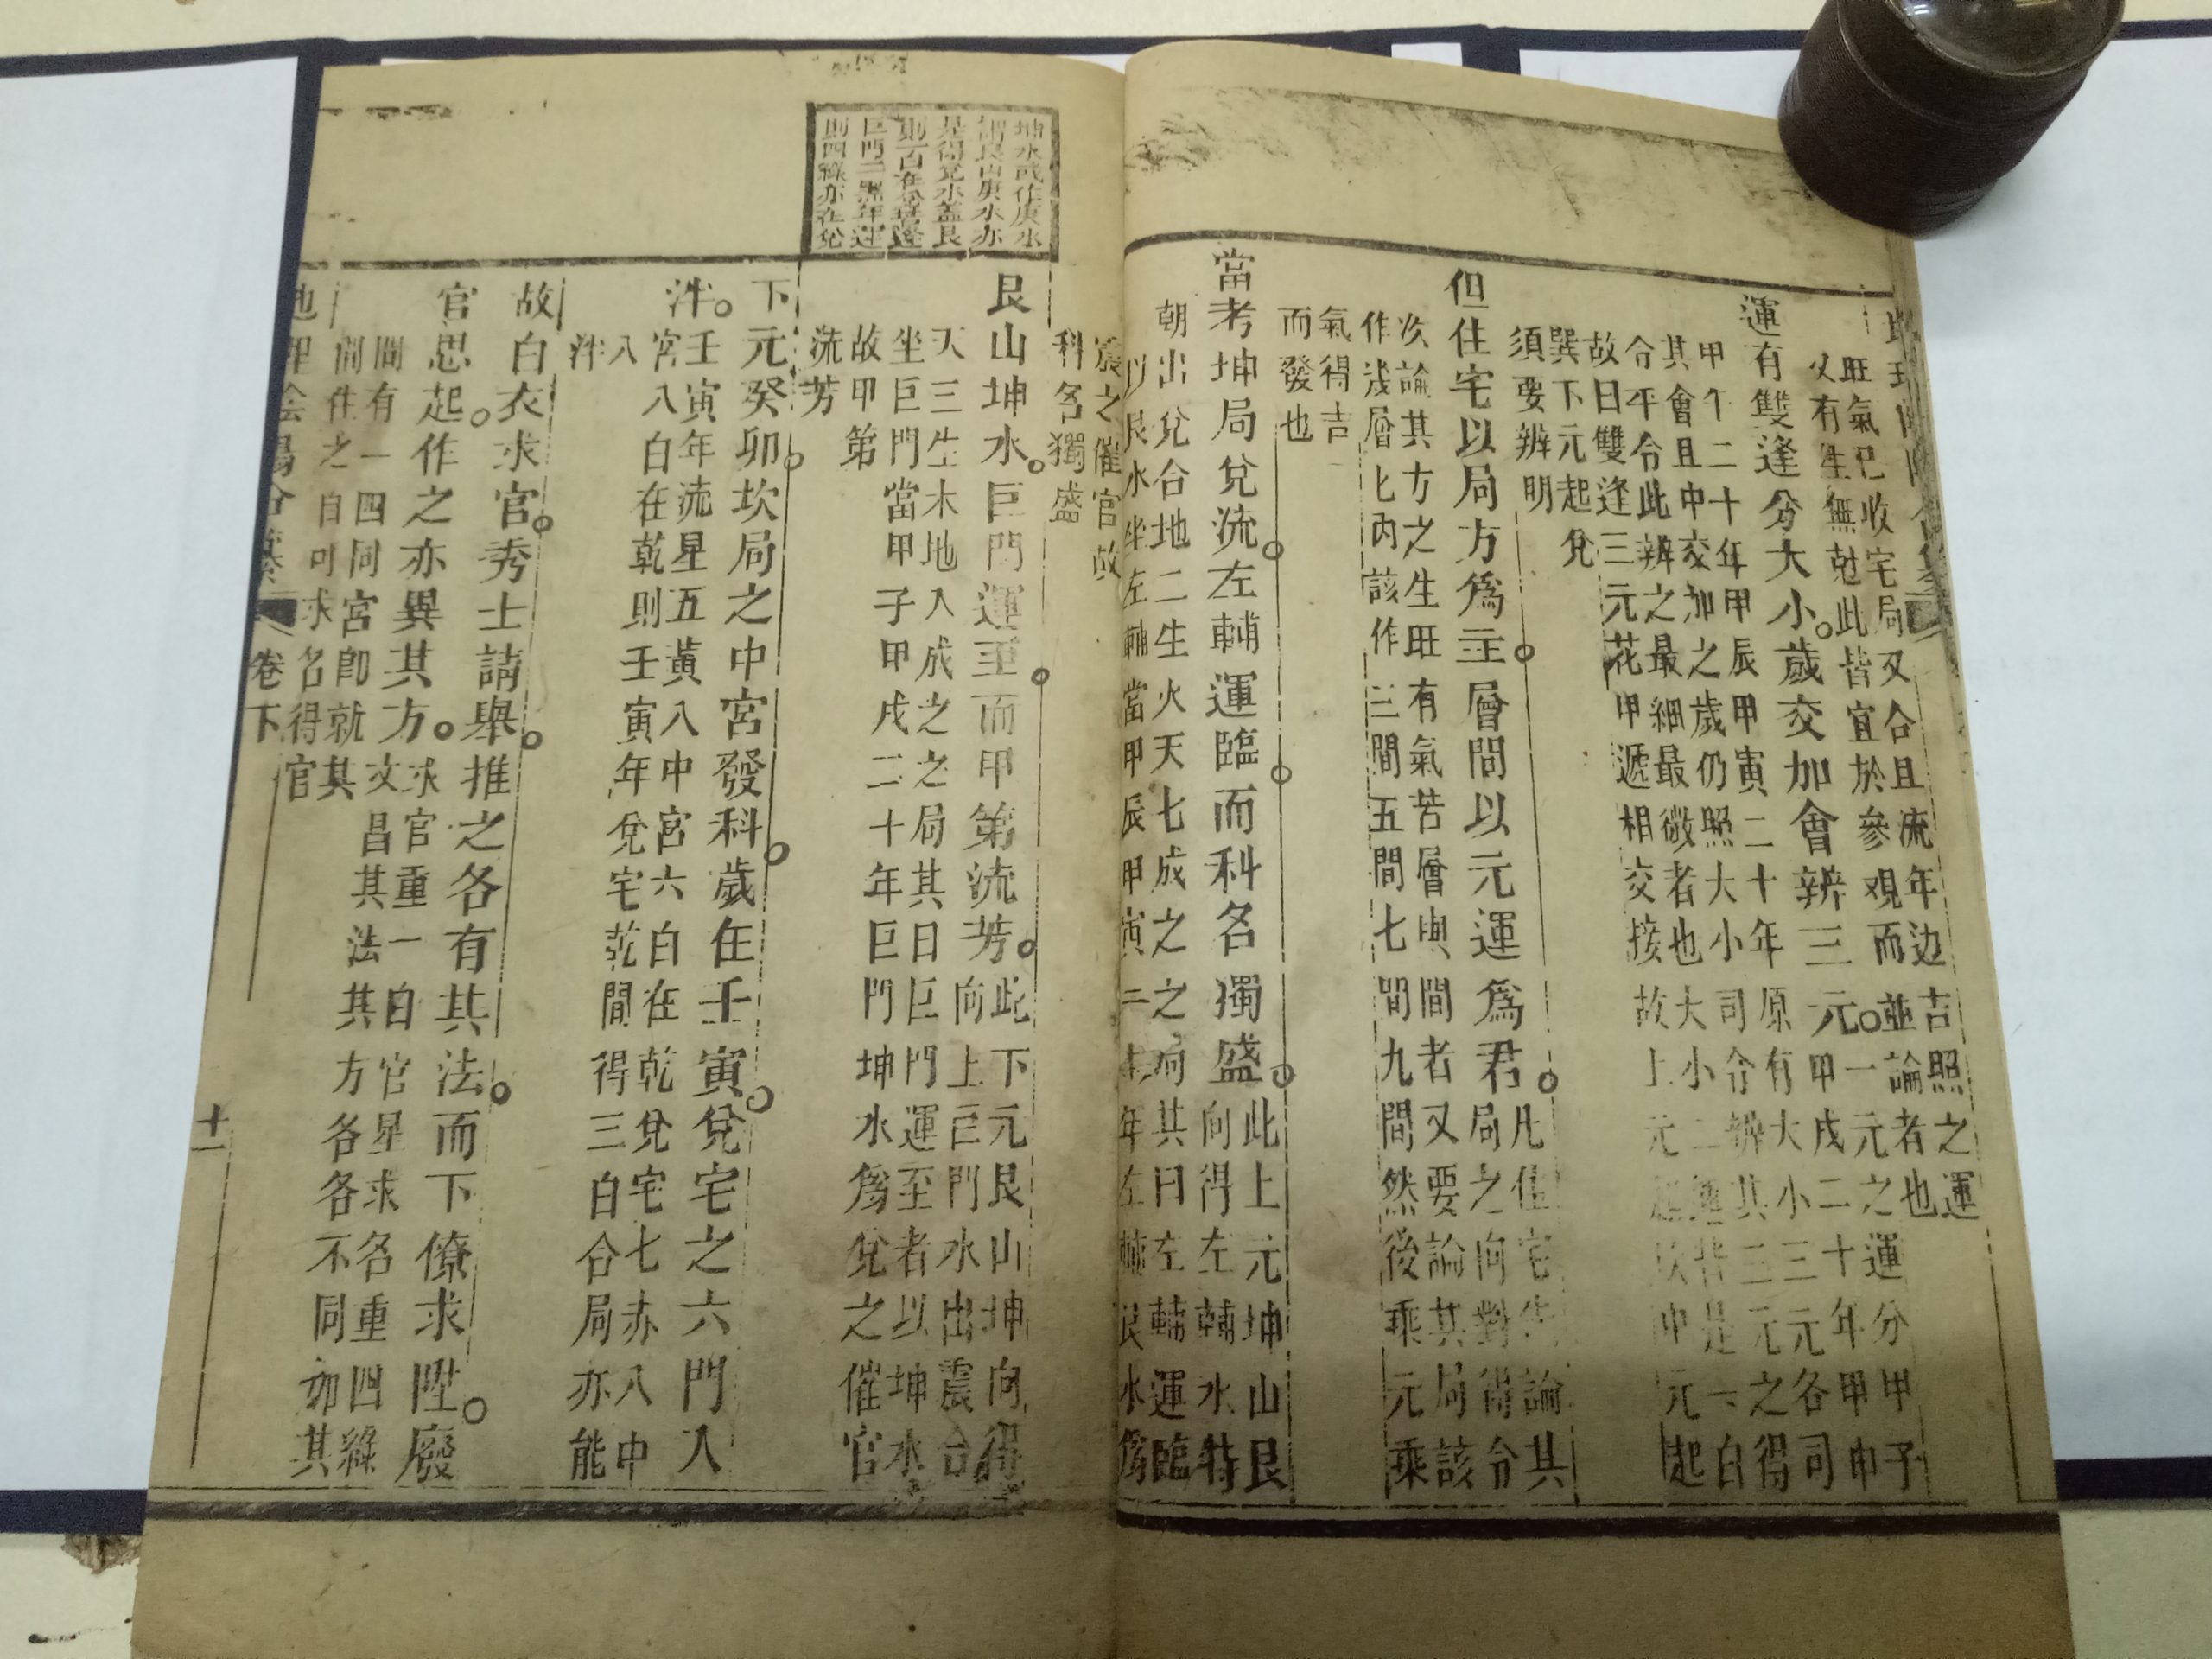 旺氣已收宅局又合且流年边吉照之運
又有生無尅此皆宜於參观而並論者也
運有雙逢分大小歲交加會辨三元一元之運分甲子
甲戌二十年甲申
甲午二十年甲辰甲寅二十年原有大小三元各司
其會且中交加之歲仍照大小司令辨其三元之得
令平令此辨之最細最微者也大小二運皆是一白
故曰雙逢三元花甲遞相交接故上元起坎中元起
巽下元起兌
須要辨明
但住宅以局方爲主層間以元運爲君凡住宅先論其
局之向對得合
次論其方之生旺有氣苦層與間者又要論其局該
作幾層七丙該作三間五間七間九間然後乘元乘
氣得吉
而發也
當考坤局兌流左輔運臨而科名獨盛此上元坤山艮
向得左輔水特
朝出兌合地二生火天七成之之局其曰左輔運臨
以艮水坐左輔當甲辰甲寅二十年左輔艮水爲
震之催官故
科名獨盛
坤水或作庚水
謂艮山庚水亦
是得兌水蓋艮
則一白在坐若逢
巨門二黑年運
則四綠亦在兌
艮山坤水巨門運至而甲第流芳此下元艮山坤向得
向上巨門水出震合
天三生木地八成之之局其曰巨門運至者以坤水
坐巨門當甲子甲戌二十年巨門坤水爲兌之催官
故甲第
流芳
下元癸卯坎局之中宮發科歲在壬寅兌宅之六門入
泮壬寅年流星五黃八中宮六白在乾兌宅七赤八中
宮八白在乾則壬寅年兌宅乾間得三白合局亦能
八
泮
故白衣求官秀士請舉推之各有其法而下僚求陞廢
官思起作之亦異其方求官重一白官星求名重四綠
文昌其法其方各各不同如其
間有一四同宮即就其
間住之自可求名得官
卷下
十一